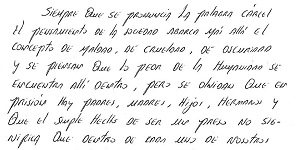 Siempre que se pronuncia la palabra cárcel
el pensamiento de la sociedad abarca más allá el
concepto de maldad, de crueldad, de oscuridad
y se piensan que lo peor de la humanidad se
encuentra allí dentro, pero se olvidan que en
prisión hay padres, madres, hijos, hermanos y
que el simple hecho de ser un preso no sig-
nifica que dentro de cada uno de nosotros